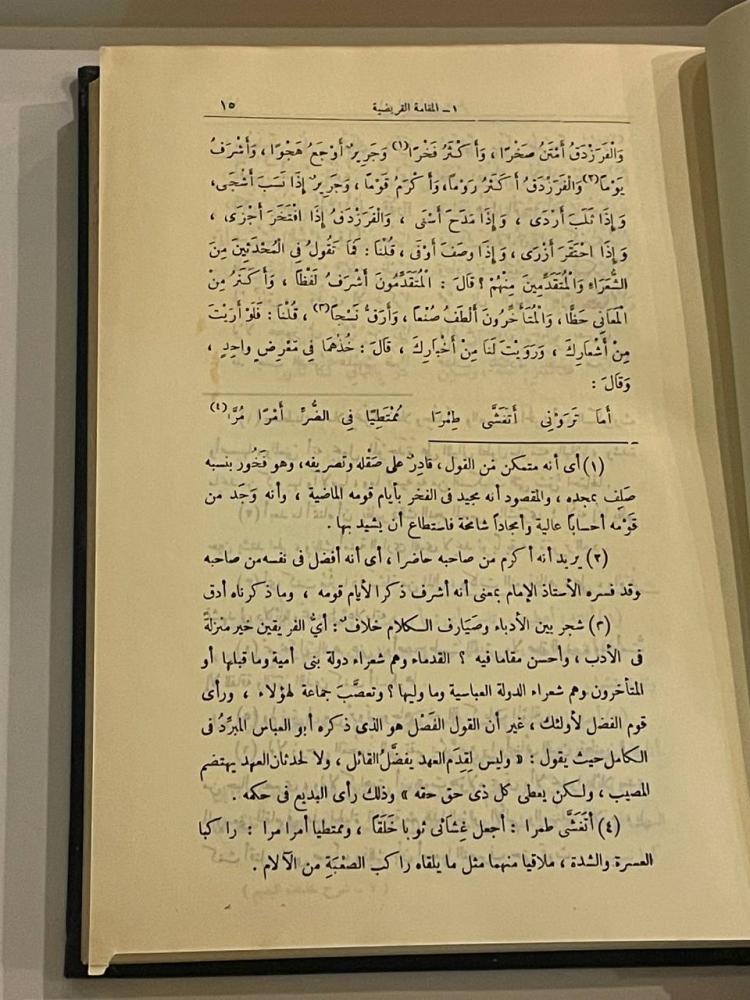 ١ – المقامة القريضية ١٥
وَالْفَرَزْدَقُ أَمْتَنُ صَخْرًا ، وَأَكْثَرُ فَخْرًا (١) وَجَرِيرٌ أَوْجَعُ هَجْوًا ، وَأَشْرَفُ
يَوْماً (٢) وَالْفَرَزْدَقُ أَكْثَرُ رَوْماً، وَأَكْرَمُ قَوْماً ، وَجَرِيرٌ إِذَا نَسَبَ أَشْجَى،
وَإِذَا ثَلَبَ أَرْدَى ، وَإِذَا مَدَحَ أَسْنَى ، وَالْفَرَزْدَقُ إِذَا افْتَخَرَ أَجْزَى ،
وَإِذَا احْتَقَرَ أَزْرَى ، وَإِذَا وَصَفَ أَوْفَى ، قُلْنَا : فَمَا تَقُولُ فِي الْمُحْدَثِينَ مِنَ
الشُّعَرَاءِ وَالْمُتَقَدِّمِينَ مِنْهُمْ ؟ قَالَ : الْمُتَقَدِّمُونَ أَشْرَفُ لَفْظاً ، وَأَكْثَرُ مِنْ
الْمَعَانِي حَظًّا ، وَالْمُتَأَخِّرُونَ أَلْطَفُ صُنْعاً ، وَأَرَقُّ نَسْجاً (٣) ، قُلْنَا : فَلَوْ أَرَيْتَ
مِنْ أَشْعَارِكَ ، وَرَوَيْتَ لَنَا مِنْ أَخْبَارِكَ ، قَالَ : خُذْهُمَا فِي مَعْرِضٍ وَاحِدٍ ،
وَقَالَ :
أَمَا تَرَوْنِي أَتَغَشَّى طِمْرَا مُمْتَطِيًا فِي الضُّرِّ أَمْرًا مُرَّا (٤)
(١) أى أنه متمكن من القول ، قادِرٌ على صَقْله وتصريفه، وهو فَخُور بنسبه
صَلِف بمجده ، والمقصود أنه مجيد فى الفخر بأيام قومه الماضية ، وأنه وَجَد من
قَوْمه أحساباً عالية وأمجاداً شامخة فاستطاع أن يشيد بها .
(٢) يريد أنه أكرم من صاحبه حاضرا ، أى أنه أفضل فى نفسه من صاحبه
وقد فسره الأستاذ الإمام بمعنى أنه أشرف ذكرا لأيام قومه ، وما ذكرناه أدق
(٣) شجر بين الأدباء وصَيَارف الكلام خلافٌ : أيُّ الفريقين خير منزلةً
فى الأدب ، وأحسن مقاما فيه ؟ القدماء وهم شعراء دولة بنى أمية وما قبلها أو
المتأخرون وهم شعراء الدولة العباسية وما وليها ؟ وتعصَّبَ جماعة لهؤلاء ، ورأى
قوم الفضل لأولئك ، غير أن القول الفَصْل هو الذى ذكره أبو العباس المبَرِّدُ فى
الكامل حيث يقول : « وليس لِقِدَم العهد يفضَّلُ القائل ، ولا لحدثان العهد يهتضم
المصيب ، ولكن يعطى كل ذى حق حقه » وذلك رأى البديع فى حكمه .
(٤) أتَغَشَّى طمرا : أجعل غِشَائى ثوبا خَلَقاً ، وممتطيا أمرا مرا : راكبا
العسرة والشدة ، ملاقيا منهما مثل ما يلقاه راكب الصَّعْبَةِ من الآلام .